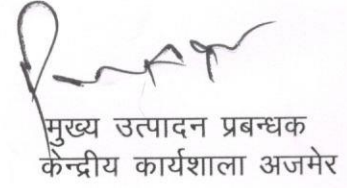 मुख्य उत्पादन प्रबन्धक
केन्द्रीय कार्यशाला अजमेर